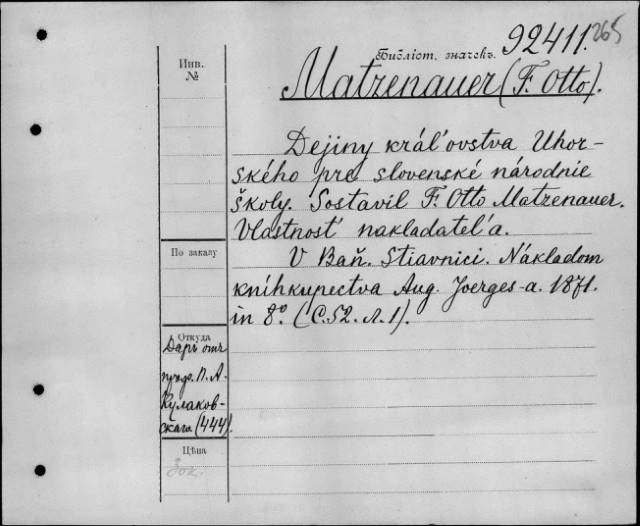 Библіот. значекъ. 92411. 265
Инв.
№
Matzenauer (F. Otto).
Dejiny kráľovstva Uhor-
ského pre slovenské národnie
školy. Sostavil F. Otto Matzenauer.
Vlastnosť nakladateľa.
По заказу
V Baň. Stiavnici. Nákladom
kníhkupectva Aug. Joerges-a. 1871.
in 8º. (C. 52. л. 1).
Откуда
Даръ отъ
проф. П. А.
Кулаков-
скаго (444).
Цѣна